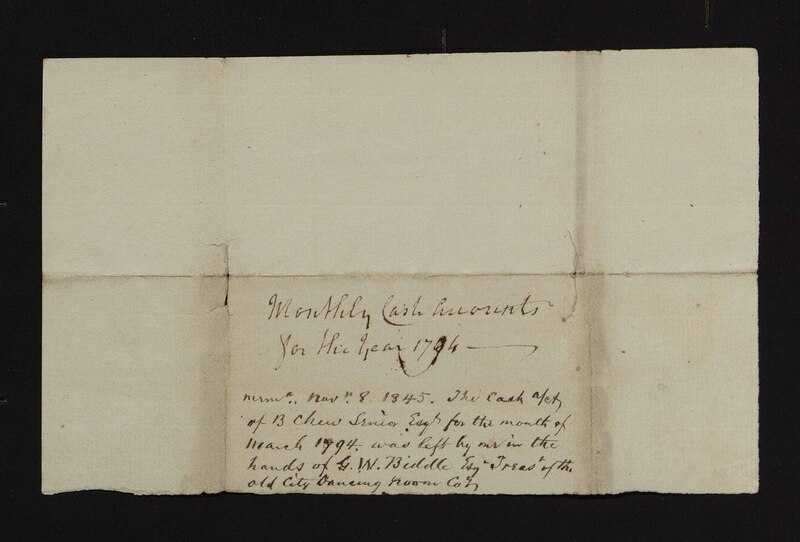 Monthly Cash Accounts
for the Year 1794 —
mem<sup>a</sup>. Nov<sup>r</sup>. 8 1845. The Cash a/ct
of B Chew Senior Esq<sup>r</sup> for the month of
March 1794. was left by me in the
hands of G. W. Biddle Esq<sup>r</sup> Treas<sup>r</sup> of the
old City Dancing Room Co<sup>y</sup>